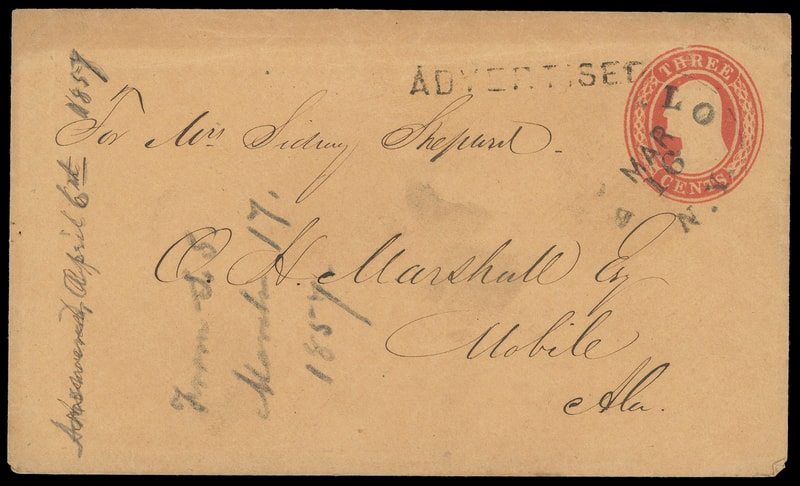 ADVERTISED
THREE
CENTS
L O
MAR
16
N.Y.
For Mrs Sidney Shepard
O. H. Marshall Esq
Mobile
Ala.
From S S
March 17.
1857
Answered April 6th 1857